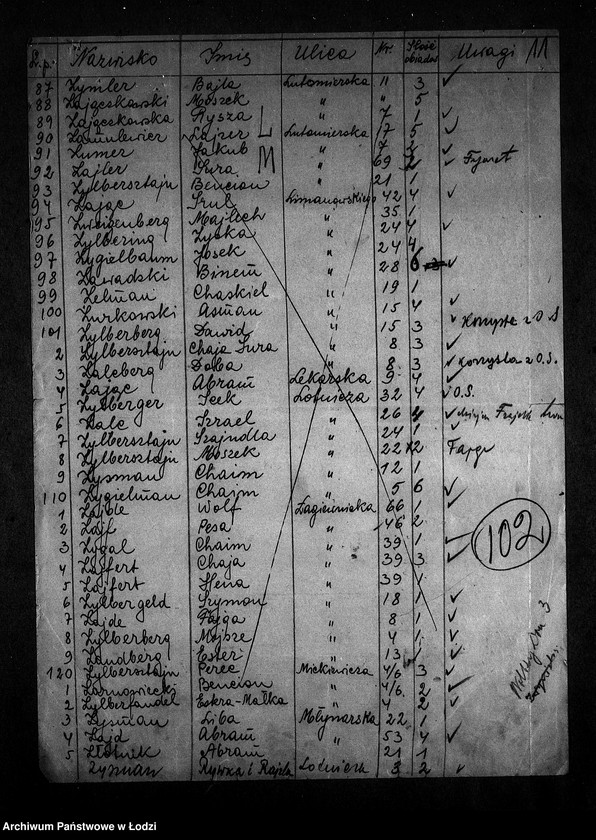 L.p. Nazwisko Imię Ulica Nr. Ilość obiadów Uwagi 11
87 Zymler Bajla Lutomierska 11 3
88 Zajączkowski Moszek " " 5
89 Zajączkowska Ryza " 7 1
90 Lajzer Lutomierska 17 5
91 Zumer Jakub " 7 2
92 Zajfer Sura " 69 Fajrant
93 Zylbersztajn Bencion " 21 1
94 Zając Srul Limanowskiego 42 4
95 Majlech " 35 1
96 Zylbering " 24 4
97 Zygielbaum Josek " 24 4
98 Zawadzki Binem " 28 6
99 Zelman Chaskiel " 19 1
100 Żurkowski " 15 4
101 Zylberberg Dawid " 15 3 z O.S.
2 Zylbersztajn Chaja Sura " 8 3
3 Zaleberg Doba " 8 3 korzysta z O.S.
4 Zając Abram Lekarska 9 4
5 Zylberger Icek Lotnicza 32 4 O.S.
6 Izrael " 26 4
7 Zylbersztajn Szajndla " 24 1
8 Zylbersztajn Moszek " 22 2
9 Zysman Chaim " 12 1
110 Zygielman Chaim " 5 6
1 Zajde Wolf Łagiewnicka 66 1
2 Zajf Pesa " 46 2
3 Zygal Chaim " 39 1
4 Zajfert Chaja " 39 3
5 Zajfert Hena " 39 1
6 Zylbergeld Szymon " 18 1
7 Zajde Fajga " 8 1
8 Zylberberg Mojsze " 4 1
9 Zandberg Ester " 13 1
120 Zylbersztajn Perec Mickiewicza 4/6 3
1 Bencion " 4/6 2
2 Zylberfandel Estera-Małka " 4 2
3 Zysman Liba Młynarska 22 1
4 Zajd Abram " 53 4
5 Złotnik Abram " 21 1
Zysman Rywka i Rajzla Lotnicza 8 2
102
Archiwum Państwowe w Łodzi